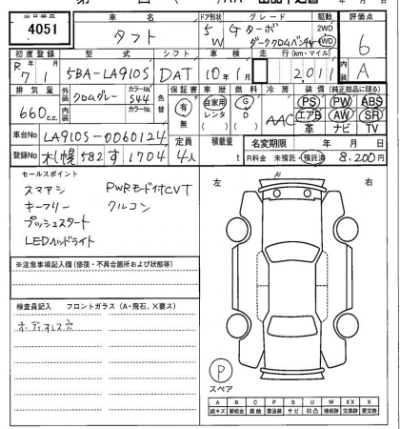 出品番号 車名 ドア形状 グレード 駆動 評価点
4051 タフト 5 W Gターボ ダーククロムベンチャー 2WD 4WD 6
初度登録 型式 シフト 車検 走行(km・マイル) 内装
R 7/1 5BA-LA910S DAT 10年1月 2,011 A
排気量 外装 クロムグレー カラーNo. S44 色替 保証書 車歴 燃料 冷房 装備(純正部品に限る)
660cc 内装 カラーNo. 有 無 自家用 レンタ ( ) G D ( ) AAC PS PW ABS
エアB AW SR
革 ナビ TV
車台No LA910S-0060124 定員 積載量 名変期限 年 月 日
登録No 札幌 582 す 1704 4人 t R料金 未預託・預託済 8,200円
セールスポイント
スマアシ PWRモード付CVT
キーフリー クルコン
プッシュスタート
LEDヘッドライト
左 右
※注意事項記入欄(修復・不具合箇所および状態等)
検査員記入 フロントガラス(A・飛石、×要ス)
オーディオレス☆
P
スペア
A B C P S U W X XX